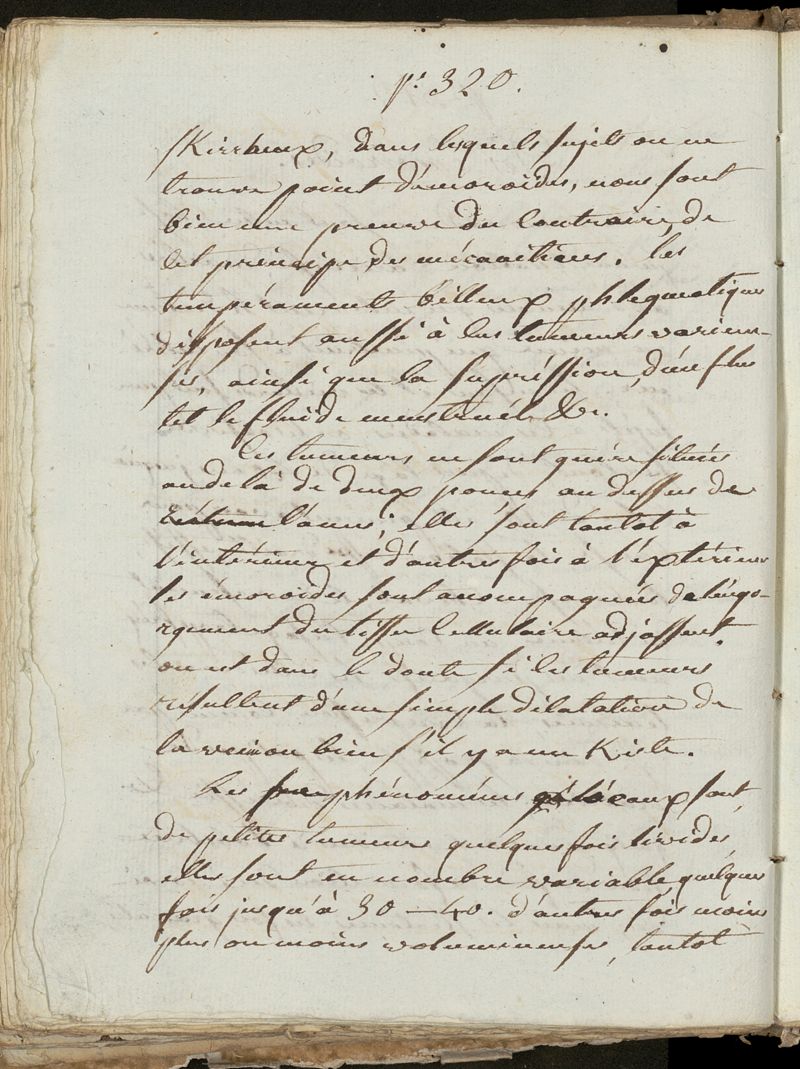 p. 320.
skirrheux, dans lesquels sujets on ne
trouve point d'émoroides, nous font
bien une preuve du contraire, de
cet principe des mécaniciens. les
tempérament billeux phlegmatiques
disposent aussi à les tumeurs varieu-
ses, ainsi que la supréssion, d'un flus
tel le fluide menstruél &c.
les tumeurs ne sont guére situées
au de là de deux pouces au dessus de
l'anus; elles sont tantot à
l'intérieur et d'autres fois à l'éxtérieur
les émoroides sont acompagnées de l'engo-
rgement du tissu cellulaire adjassent.
on est dans le doute si les tumeurs
résultent d'une simple dilatation de
la vein ou bien s'il y a un Kiste.
Les phénoménes locaux sont
de petites tumeurs quelques fois livides
elles sont en nombre variable, quelques
fois jusqu'à 30 — 40. d'autres fois moins
plus ou moins volumineuses, tantot